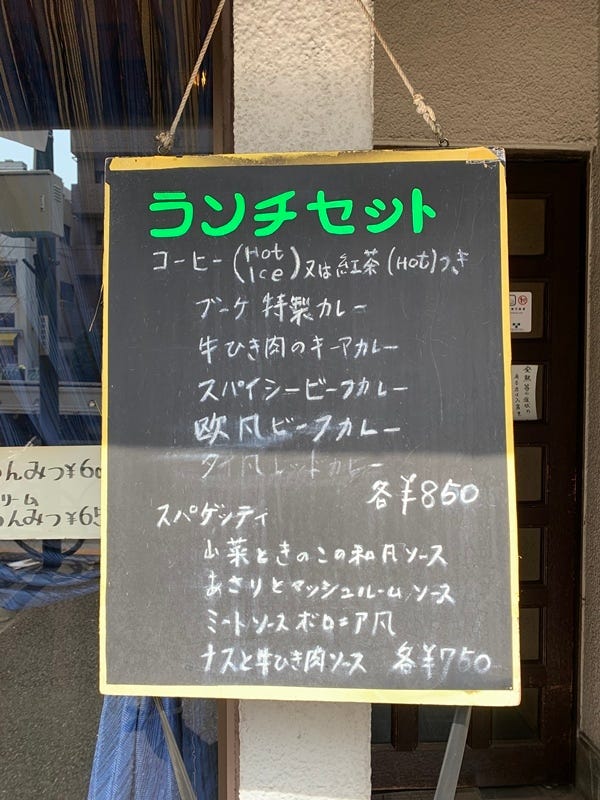 ランチセット
コーヒー(Hot Ice)又は紅茶(Hot)つき
ブーケ特製カレー
牛ひき肉のキーマカレー
スパイシービーフカレー
欧風ビーフカレー
タイ風レッドカレー
各¥850
スパゲッティ
山菜ときのこの和風ソース
あさりとマッシュルームソース
ミートソースボロニア風
ナスと牛ひき肉ソース 各¥750
んみつ¥60
リーム
んみつ¥65